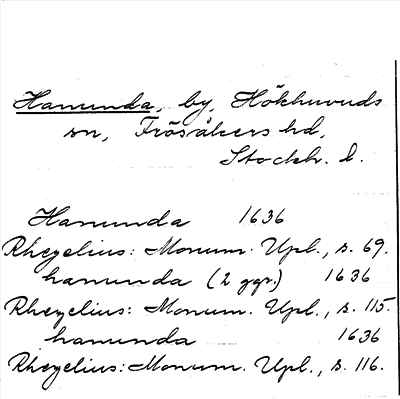 Hanunda, by, Hökhuvuds
sn, Frösåkers hd,
Stockh. l.
Hanunda 1636
Rhezelius: Monum. Upl., s. 69.
hanunda (2 ggr.) 1636
Rhezelius: Monum. Upl., s. 115.
hanunda 1636
Rhezelius: Monum. Upl., s. 116.